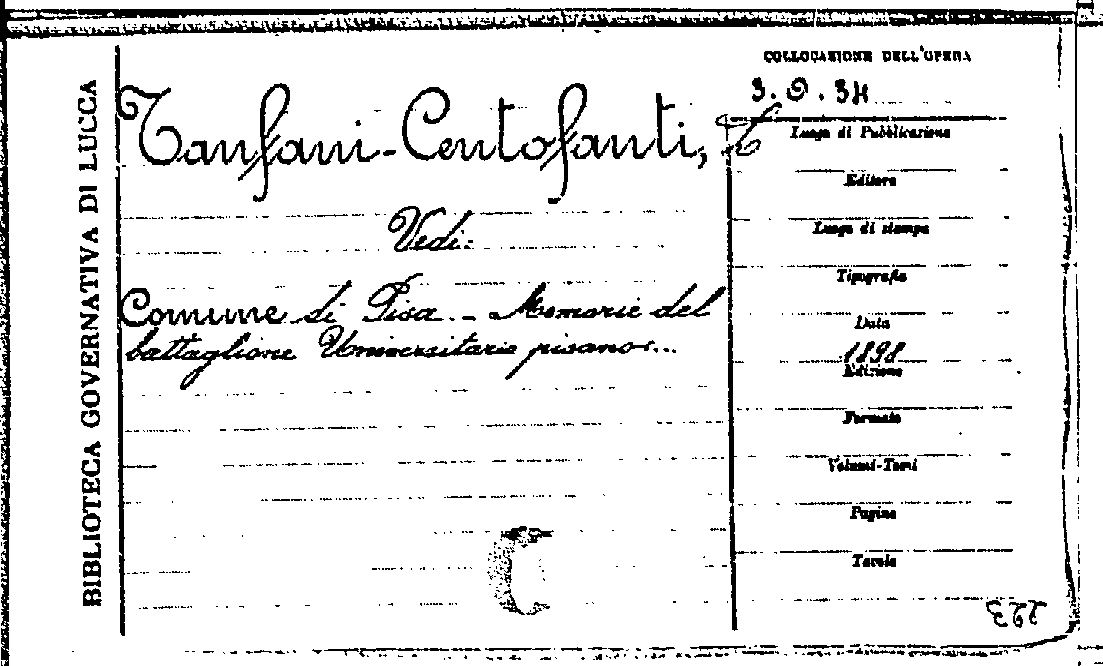 BIBLIOTECA GOVERNATIVA DI LUCCA
Tanfani-Centofanti, L
Vedi:
Comune di Pisa - Memorie del
battaglione Universitario pisano...
COLLOCAZIONE DELL'OPERA
3. O. 34
Luogo di Pubblicazione
Editore
Luogo di stampa
Tipografia
Data
1898
Edizione
Formato
Volumi-Tomi
Pagine
Tavole
C